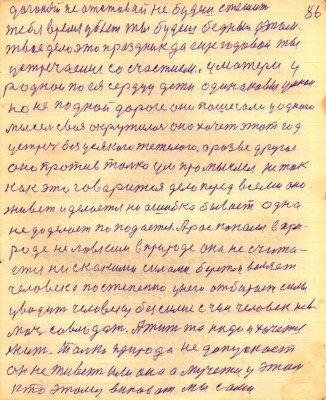 86
догоняй не отставай не будни спешит
тебя время убьет ты будеш бедным этом.
твое дело это праздник да еще годовой ты
встречаешся со счастием. у матери у
родной по ея сердцу дети одинаковы урони
но не по одной дороге они пошли у одного
мисел своя окрутилос она хочет этот год
устреч без усякого тяжелого, а розве другое
оно против толко ум промыслел не так
как это говорится дело перед всеми оно
живет и делается но ошибка бывает одна
не додумает по подается. А рас попался в при-
роде не ловким в природе она не счита-
ется ни с какими силами берет и валяет
человека постепенно у него отбирает силы
уводит человеку бессилие с чем человек нев
мочь совладат. А жит то надо и хочется
жит. Толко природа не допускает
он не живет или она а мучается у этом
кто этому виноват мы сами